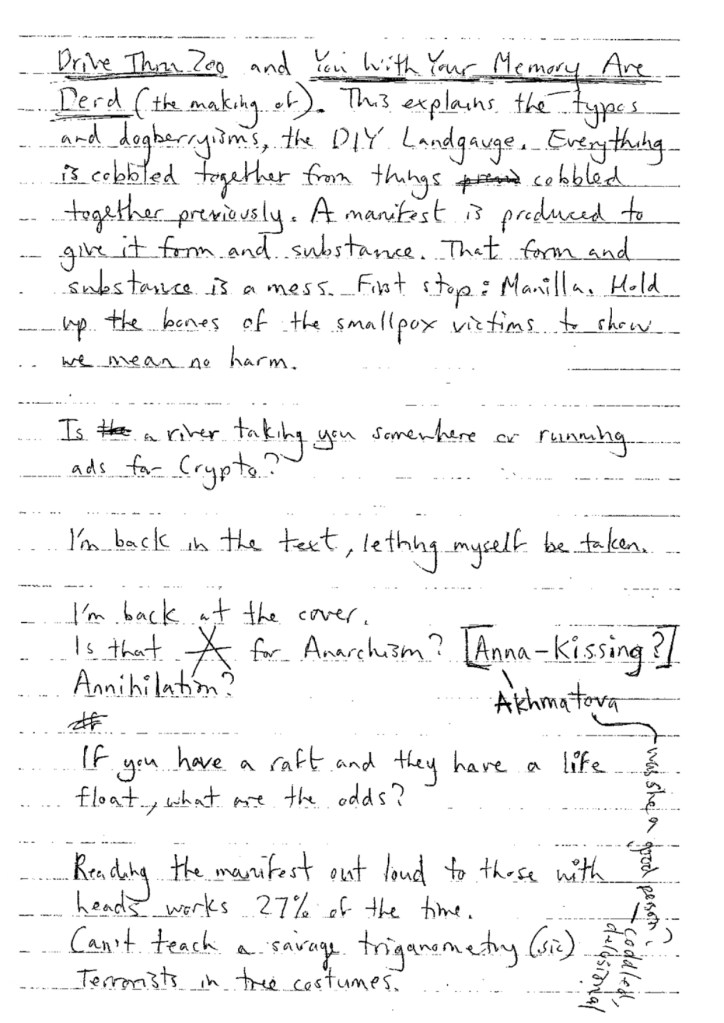 Drive Thru Zoo and You With Your Memory Are
Derd (the making of). This explains the types
and dogberryisms, the DIY Landgauge. Everything
is cobbled together from things cobbled
together previously. A manifest is produced to
give it form and substance. That form and
substance is a mess. First stop: Manilla. Hold
up the bones of the smallpox victims to show
we mean no harm.
Is the a river taking you somewhere or running
ads for Crypto?
I'm back in the text, letting myself be taken.
I'm back at the cover.
Is that A for Anarchism? [Anna-Kissing?]
Annihilation?
Akhmatova
was she a good person?
coddled,
delusional
If you have a raft and they have a life
float, what are the odds?
Reading the manifest out loud to those with
heads works 27% of the time.
Can't teach a savage triganometry (sic)
Terrorists in tree costumes.